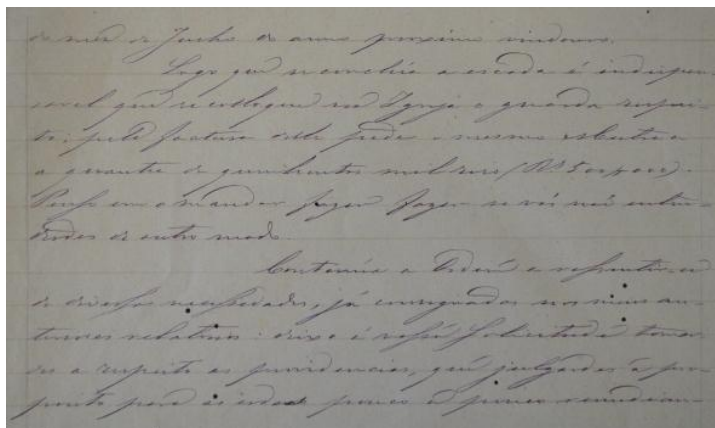 do mez de Junho do anno proximo vindouro.
Logo que se conclúa a escada é indispen-
savel que se colloque na Igreja o guarda respei-
to, pela factura deste pede o mesmo
a quantia de quinhentos mil reis (Rs 500$000).
Penso em o mandar fazer se vós não enten-
derdes de outro modo.
Continúa a Ordem a resentir-se
de diversas necessidades, já consignadas nos meus an-
teriores relatorios: deixo á vossa solicitude tomar-
des a respeito as providencias, que julgardes a pro-
posito para ás ordens pouco a pouco remedian-